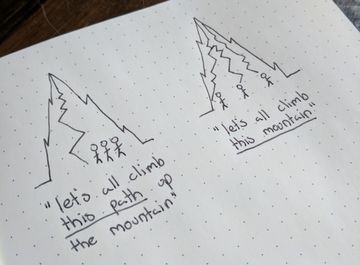 "let's all climb
this path up
the mountain"
"let's all climb
this mountain"